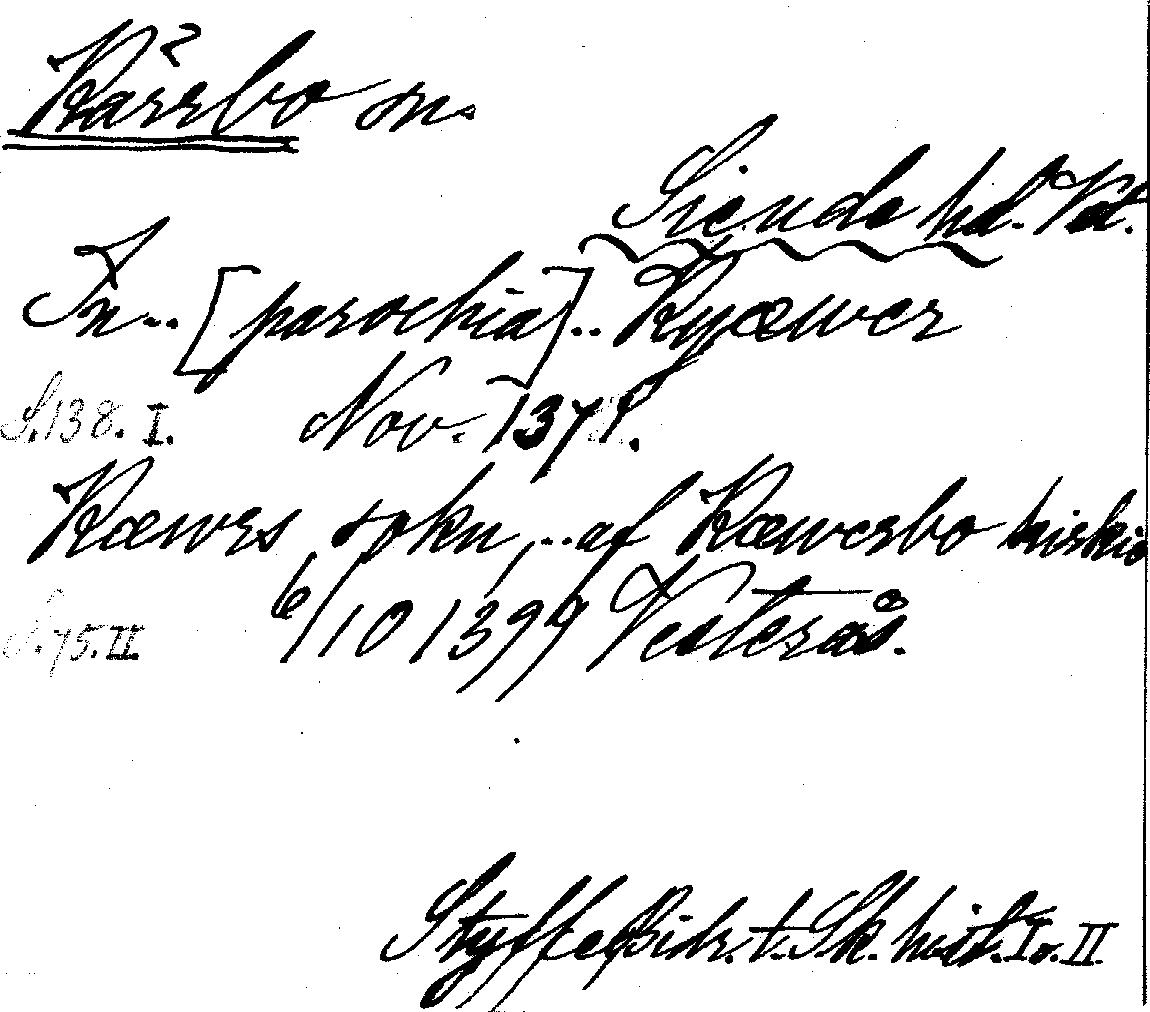 Kärrbo sn.
Siende hd. Vst.
In .. [parochia] .. Kyæwer
S. 138. I. Nov. 1371.
Kæwrs sokn, .. af Kæwerbo kirkio
S. 75. II. 6/10 1399 Vesterås.
Styffe, Bidr. t. Sk. hist. I o. II